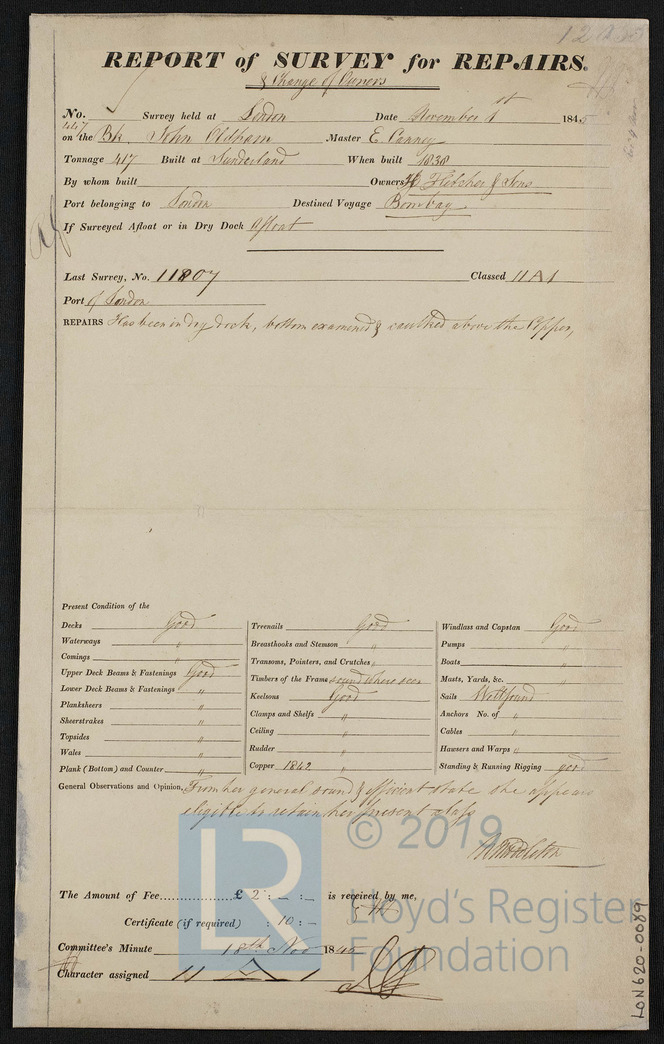 REPORT of SURVEY for REPAIRS.
& Change of Owners
No. Survey held at London Date November 1st 1845
on the Bk. John Oldham Master E. Canney
Tonnage 417 Built at Sunderland When built 1838
By whom built Owners Fletcher & Sons
Port belonging to London Destined Voyage Bombay
If Surveyed Afloat or in Dry Dock Afloat
Last Survey, No. 11807 Classed 11 A 1
Port of London
REPAIRS Has been in dry dock, bottom examined & caulked above the Copper,
Present Condition of the
Decks Good
Waterways "
Comings "
Upper Deck Beams & Fastenings Good
Lower Deck Beams & Fastenings "
Planksheers "
Sheerstrakes "
Topsides "
Wales "
Plank (Bottom) and Counter "
Treenails Good
Breasthooks and Stemson "
Transoms, Pointers, and Crutches "
Timbers of the Frame sound where seen
Keelsons Good
Clamps and Shelfs "
Ceiling "
Rudder "
Copper 1842 "
Windlass and Capstan Good
Pumps "
Boats "
Masts, Yards, &c. "
Sails Well found
Anchors No. of "
Cables "
Hawsers and Warps "
Standing & Running Rigging good
General Observations and Opinion, From her general sound & efficient state she appears
eligible to retain her present class
© 2019
Lloyd's Register
Foundation
LR
The Amount of Fee £ 2 : - : - is received by me,
Certificate (if required) : 10 : -
Committee's Minute 18th Nov 1845
Character assigned 11 A 1
LON620-0089